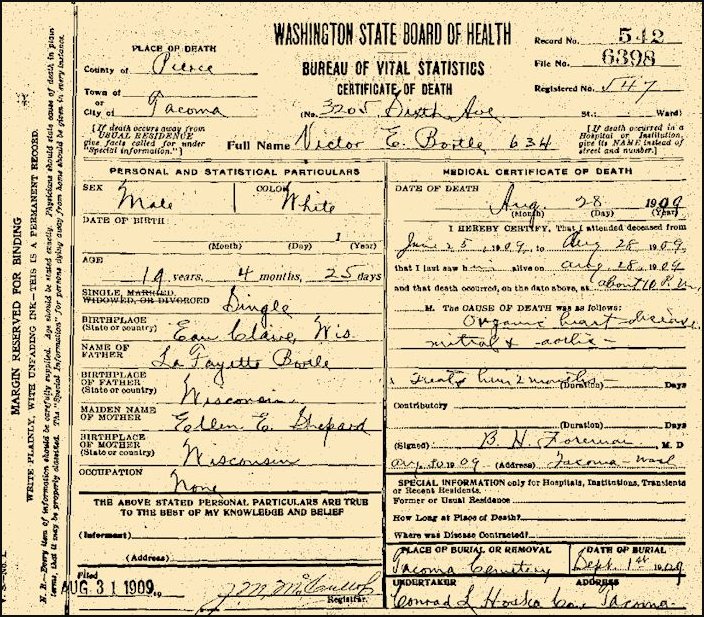 WASHINGTON STATE BOARD OF HEALTH
BUREAU OF VITAL STATISTICS
CERTIFICATE OF DEATH
Record No. 542
File No. 6398
Registered No. 547
PLACE OF DEATH
County of Pierce
Town of
or
City of Tacoma
(No. 3205 Sixth Ave St.; Ward)
[If death occurs away from
USUAL RESIDENCE
give facts called for under
"Special information."]
Full Name Victor E. Bortle 634
[If death occurred in a
Hospital or Institution,
give its NAME instead of
street and number.]
PERSONAL AND STATISTICAL PARTICULARS
SEX Male
COLOR White
DATE OF BIRTH
(Month) (Day) 1 (Year)
AGE
19 years, 4 months, 25 days
SINGLE, MARRIED,
WIDOWED, OR DIVORCED Single
BIRTHPLACE
(State or country) Eau Claire, Wis.
NAME OF
FATHER La Fayette Bortle
BIRTHPLACE
OF FATHER
(State or country) Wisconsin
MAIDEN NAME
OF MOTHER Ellen E. Shepard
BIRTHPLACE
OF MOTHER
(State or country) Wisconsin
OCCUPATION
None
THE ABOVE STATED PERSONAL PARTICULARS ARE TRUE
TO THE BEST OF MY KNOWLEDGE AND BELIEF
(Informant)
(Address)
Filed
AUG 31 1909
Registrar.
MEDICAL CERTIFICATE OF DEATH
DATE OF DEATH
Aug. 28 1909
(Month) (Day) (Year)
I HEREBY CERTIFY, That I attended deceased from
June 25, 1909, to Aug 28 1909,
that I last saw him alive on Aug 28, 1909
and that death occurred, on the date above, at about 10 P.M.
M. The CAUSE OF DEATH was as follows:
Organic heart disease
mitral & aortic
Treated him 2 months
(Duration) Days
Contributory
(Duration) Days
(Signed) B. H. Foreman M. D
Aug 30 1909 (Address) Tacoma Wash
SPECIAL INFORMATION only for Hospitals, Institutions, Transients
or Recent Residents.
Former or Usual Residence
How Long at Place of Death?
Where was Disease Contracted?
PLACE OF BURIAL OR REMOVAL
Tacoma Cemetery
DATE OF BURIAL
Sept. 1st 1909
UNDERTAKER
Conrad L Hoska Co.
ADDRESS
Tacoma
MARGIN RESERVED FOR BINDING
WRITE PLAINLY, WITH UNFADING INK—THIS IS A PERMANENT RECORD.
N. B.—Every item of information should be carefully supplied. Age should be stated exactly. Physicians should state cause of death in plain
terms, that it may be properly classified. The "Special Information" for persons dying away from home should be given in every instance.
V. S.—No. 1.